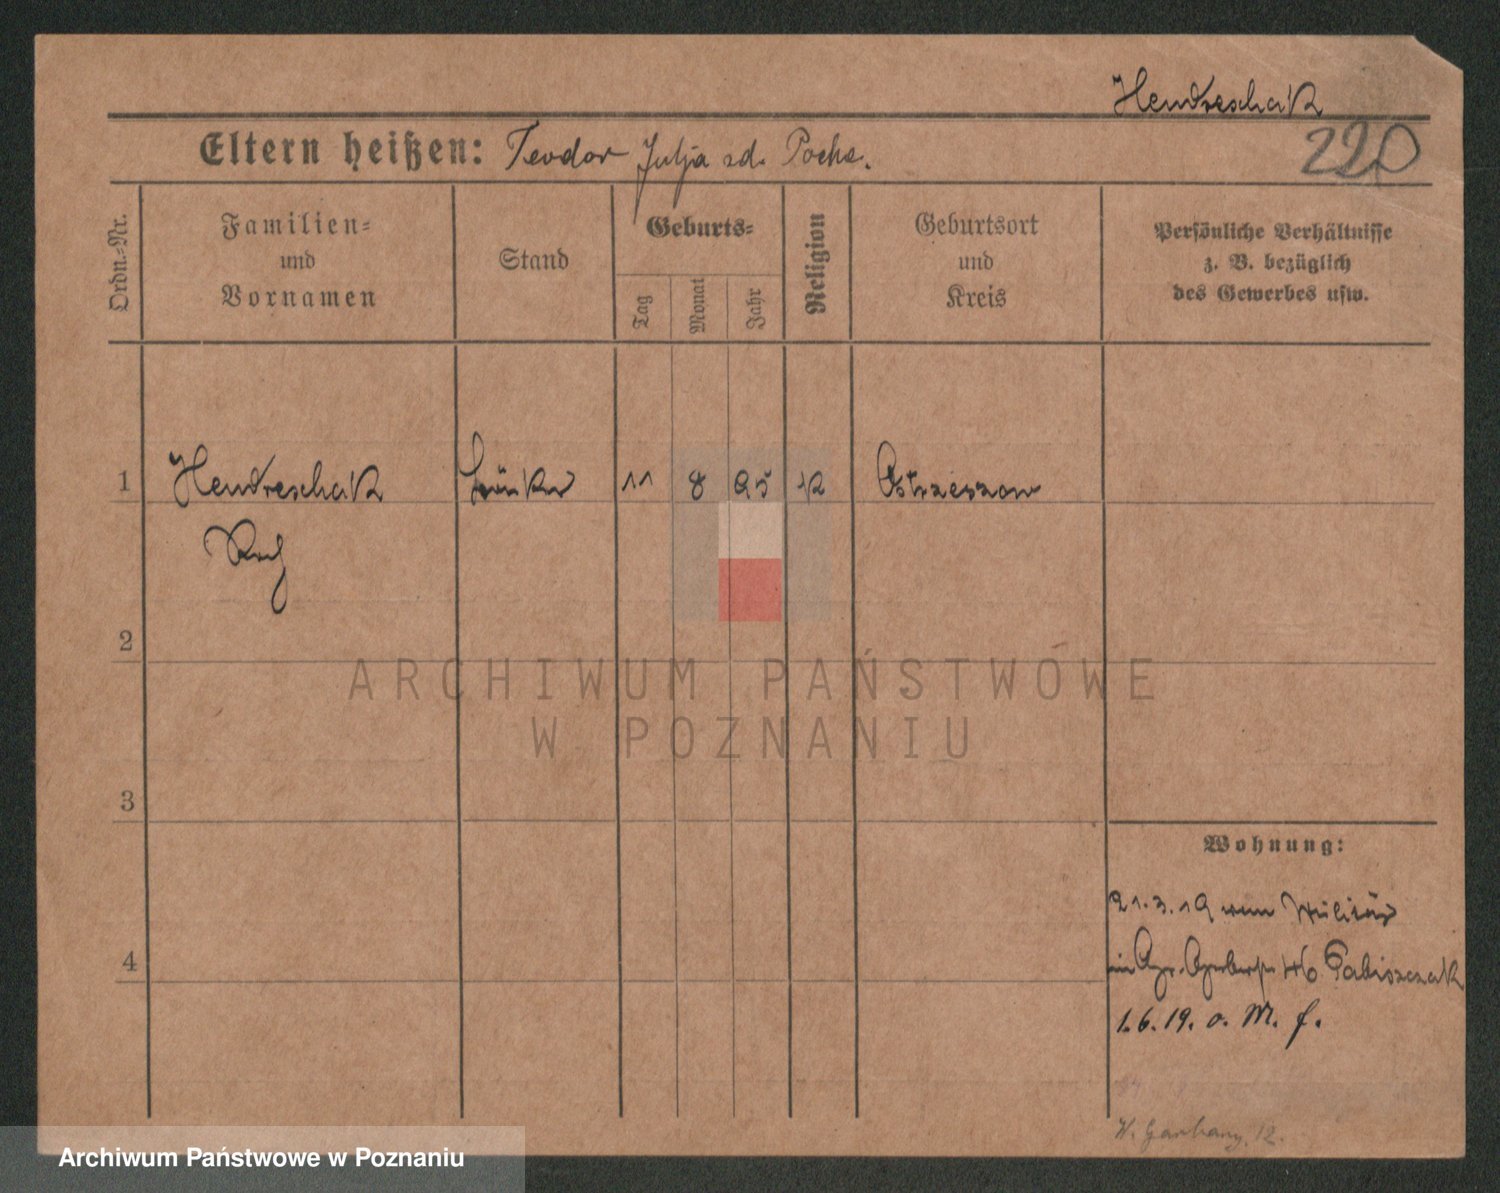 Hendreschak
220
Eltern heißen: Teodor Julja zd. Pocha.
Ordn.-Nr.
Familien-
und
Vornamen
Stand
Geburts-
Tag
Monat
Jahr
Religion
Geburtsort
und
Kreis
Persönliche Verhältnisse
z. B. bezüglich
des Gewerbes usw.
1
Hendreschak
11
8
95
K
Ostrzeszow
2
ARCHIWUM PAŃSTWOWE
W POZNANIU
3
Wohnung:
21.3.19 vom Militär
46 Pabiszczak
4
1.6.19. o. M. f.
12.
Archiwum Państwowe w Poznaniu